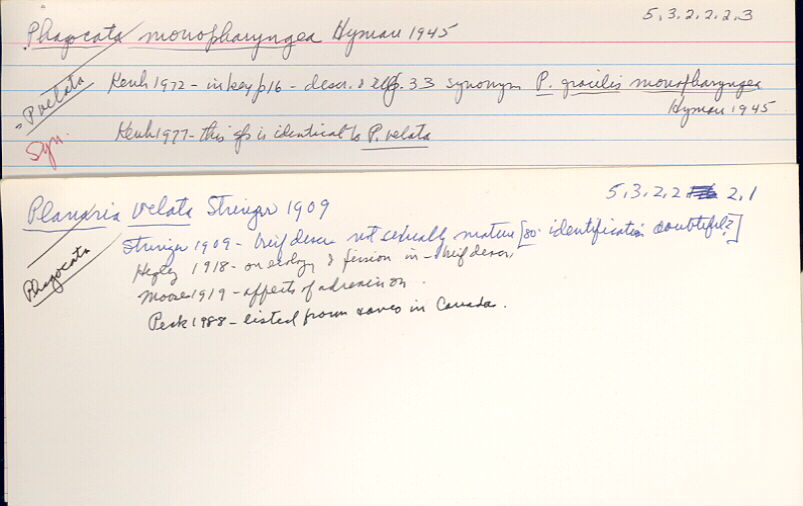 5,3.2.2.2.3
Phagocata monopharyngea Hyman 1945
Kenk 1972 - in key p16 - descr. & p. 33 synonym P. gracilis monopharyngea
Hyman 1945
= P. velata
Syn.
Kenk 1977 - this is identical to P. velata
5,3.2.2 2.1
Planaria velata Stringer 1909
Stringer 1909 - brief descr. not sexually mature [so identification doubtful?]
Phagocata
1918 - on ecology & fission in - brief descr
Moore 1919 - affects of adrenalin on.
Peck 1988 - listed from caves in Canada.